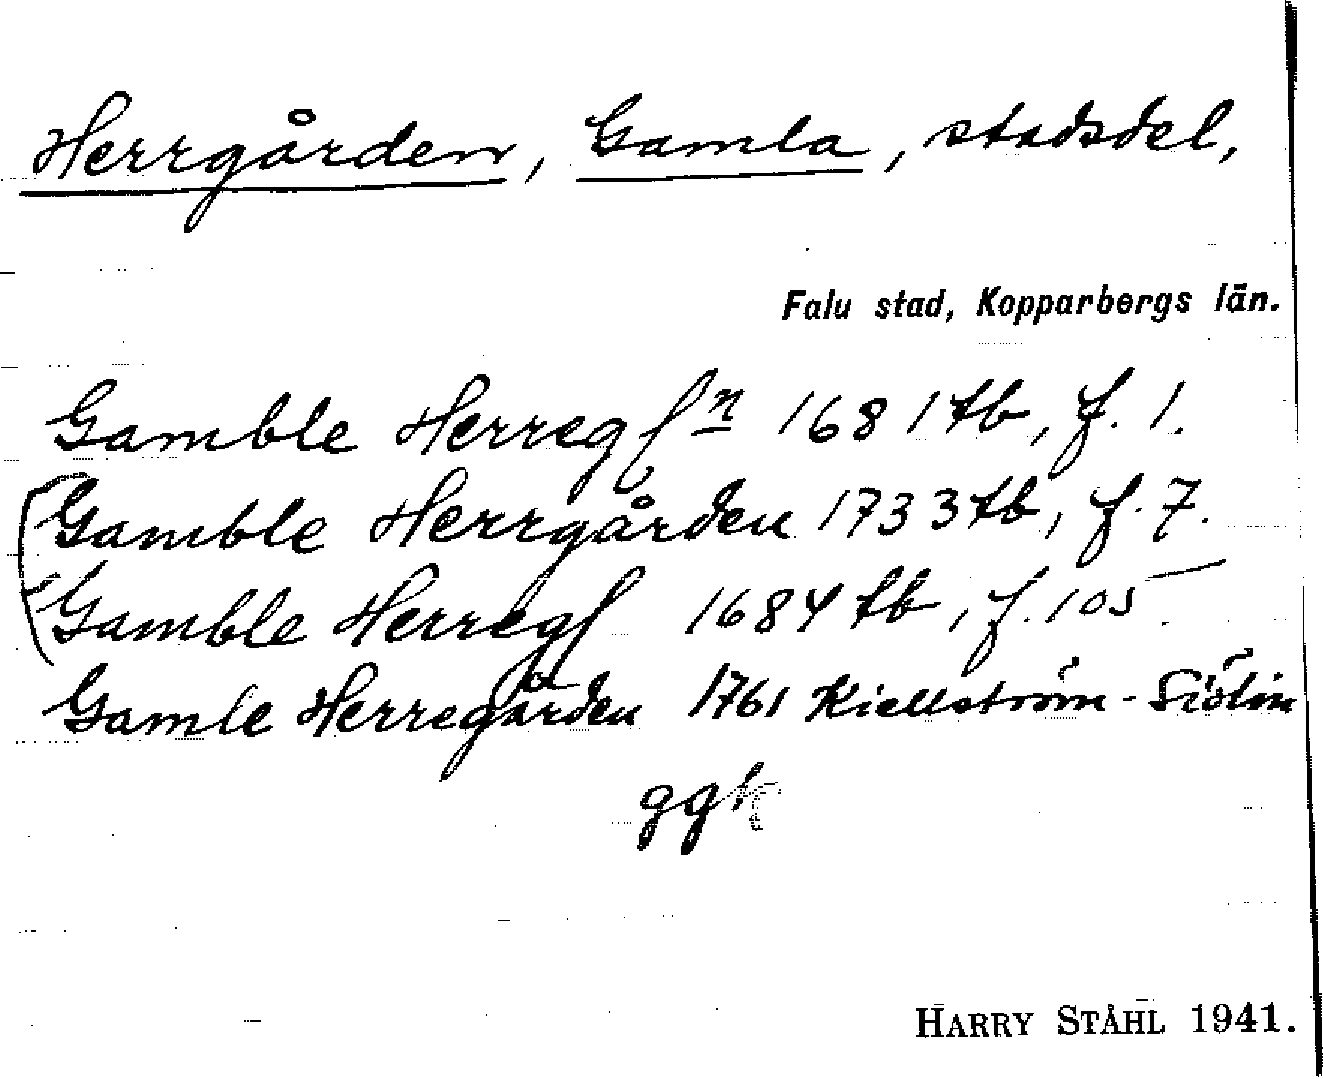 Herrgården, Gamla, stadsdel,
Falu stad, Kopparbergs län.
Gamble Herreg 1681 tb, f. 1.
Gamble Herrgården 1733 tb, f. 7.
Gamble Herreg 1684 tb, f. 105
Gamle Herregården 1761 Kiellström-Siölin
ggk
HARRY STÅHL 1941.